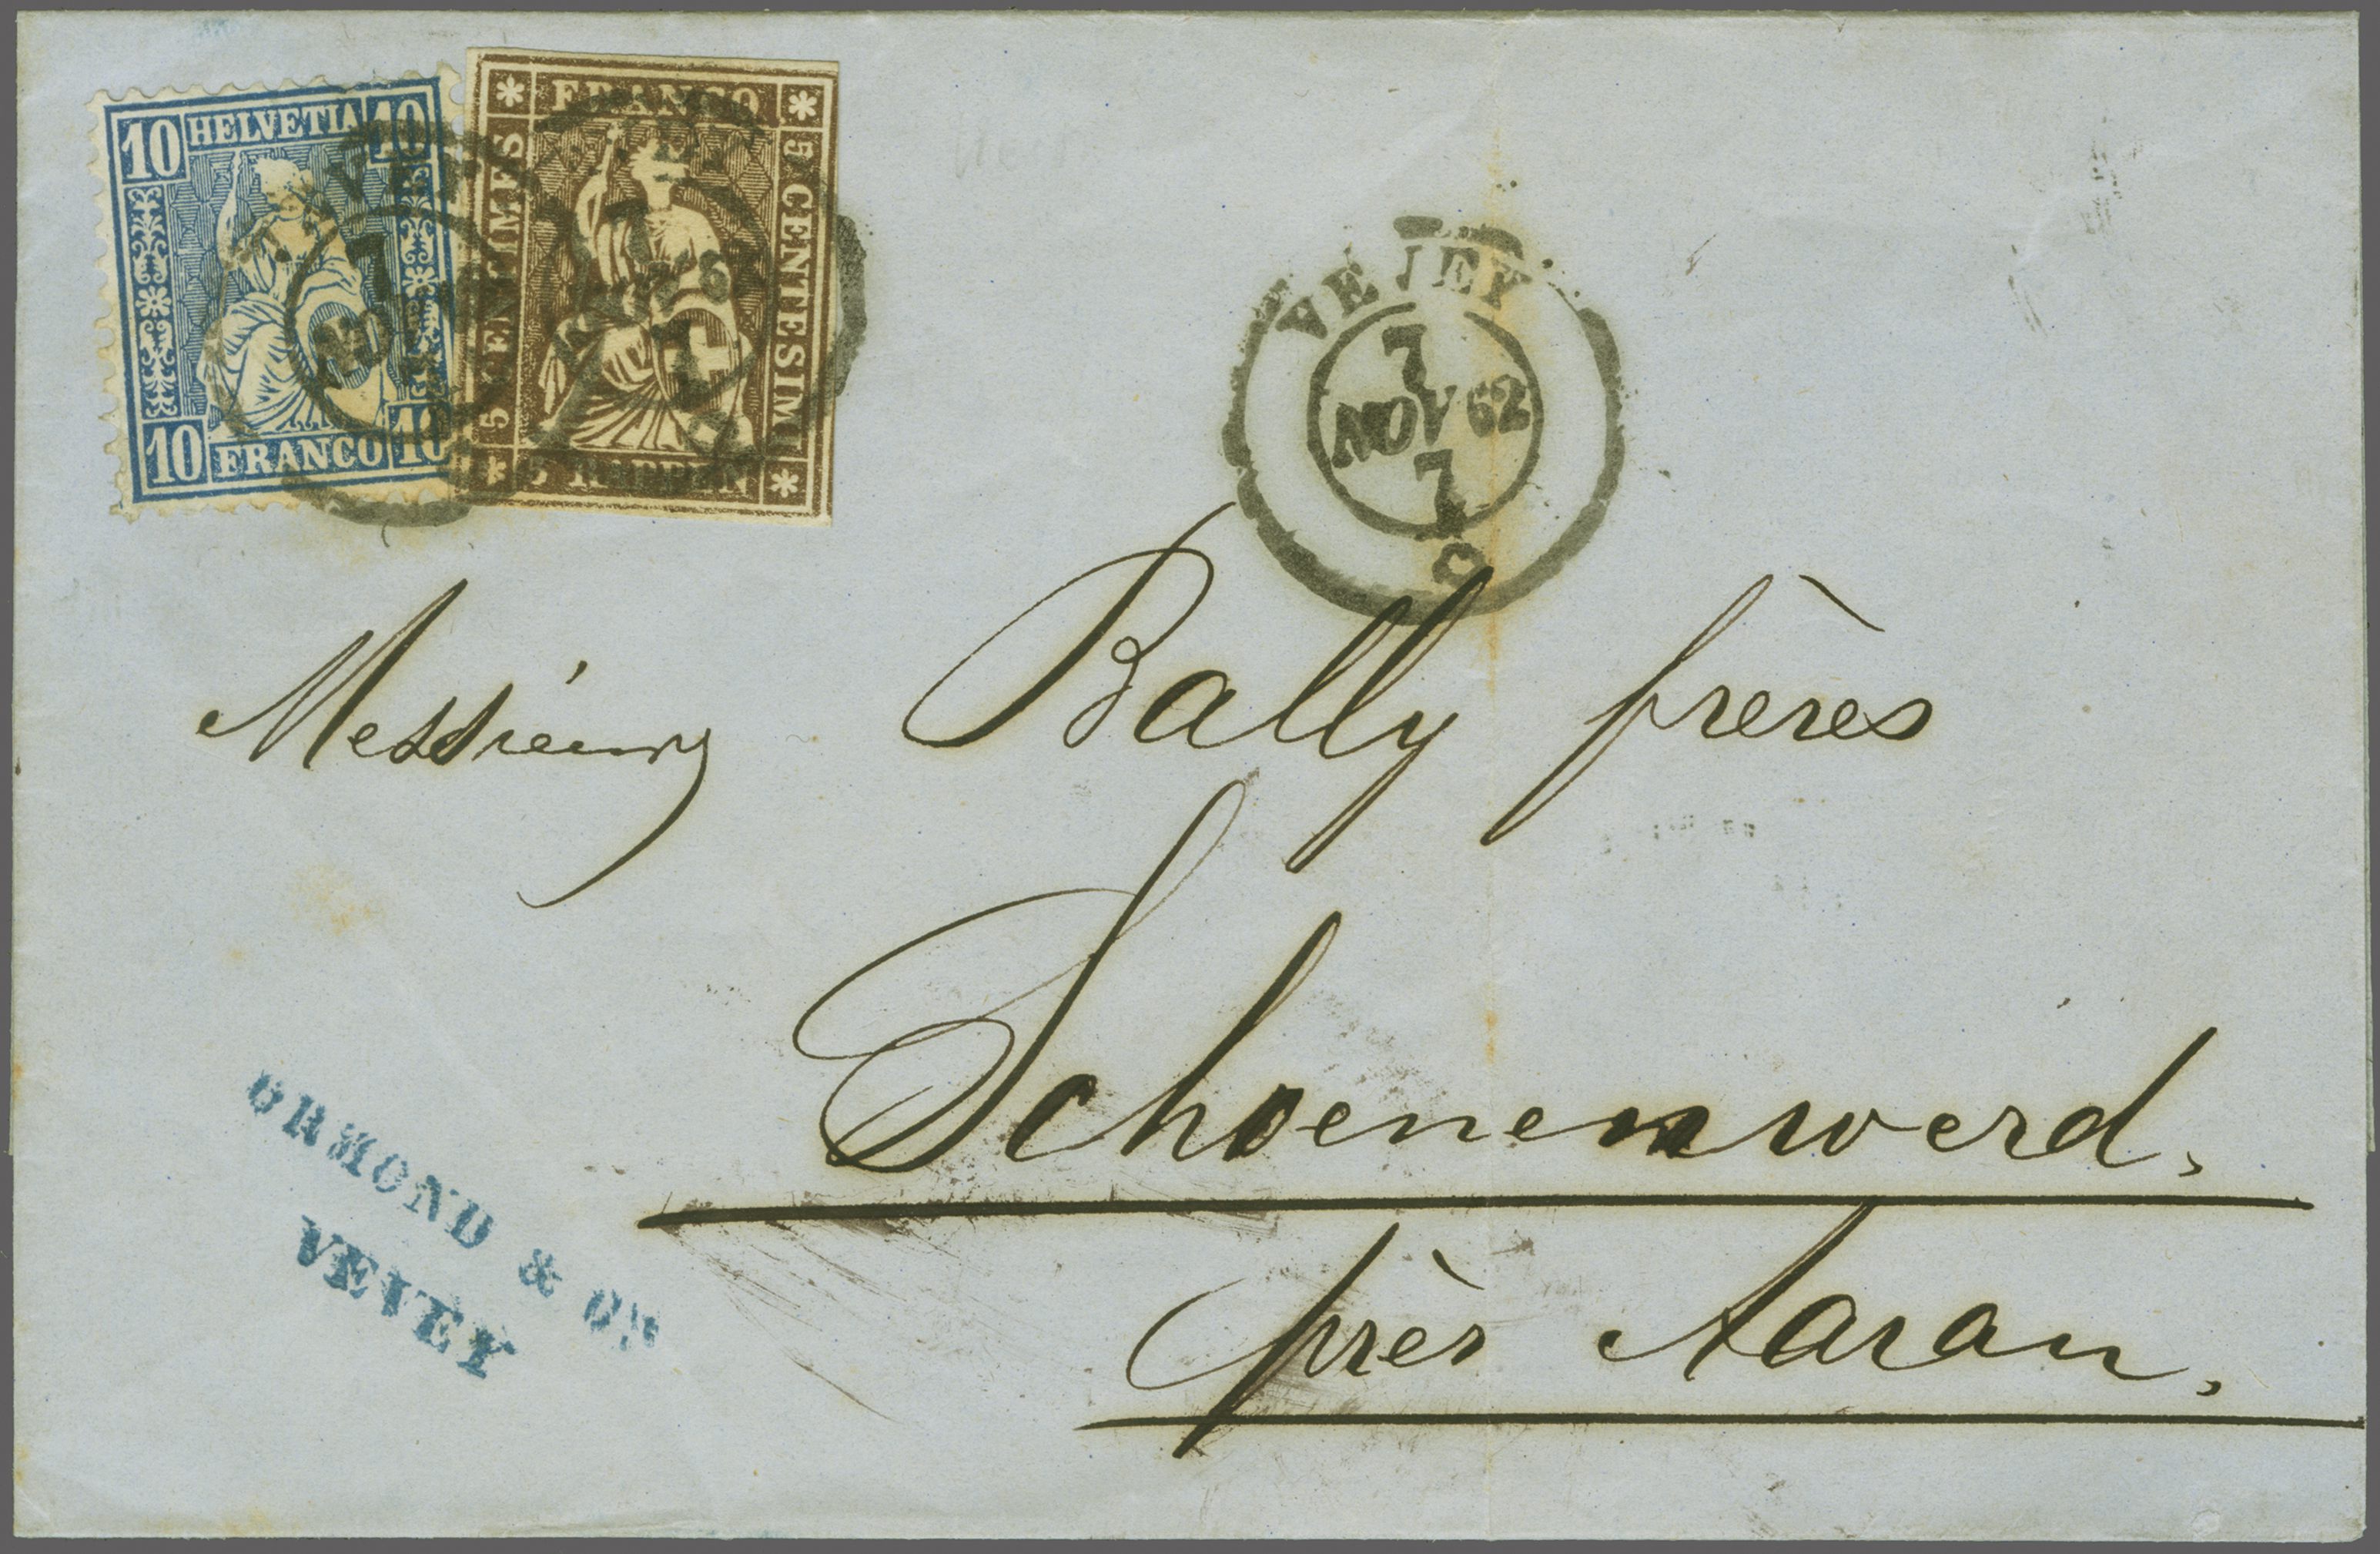 10 HELVETIA 10
10 FRANCO 10
FRANCO
5 CENTIMES
5 CENTESIMI
5 RAPPEN
VEVEY
7
NOV 62
7
C
Messieurs Bally frères
Schoenenwerd.
près Aarau.
ORMOND & CIE
VEVEY